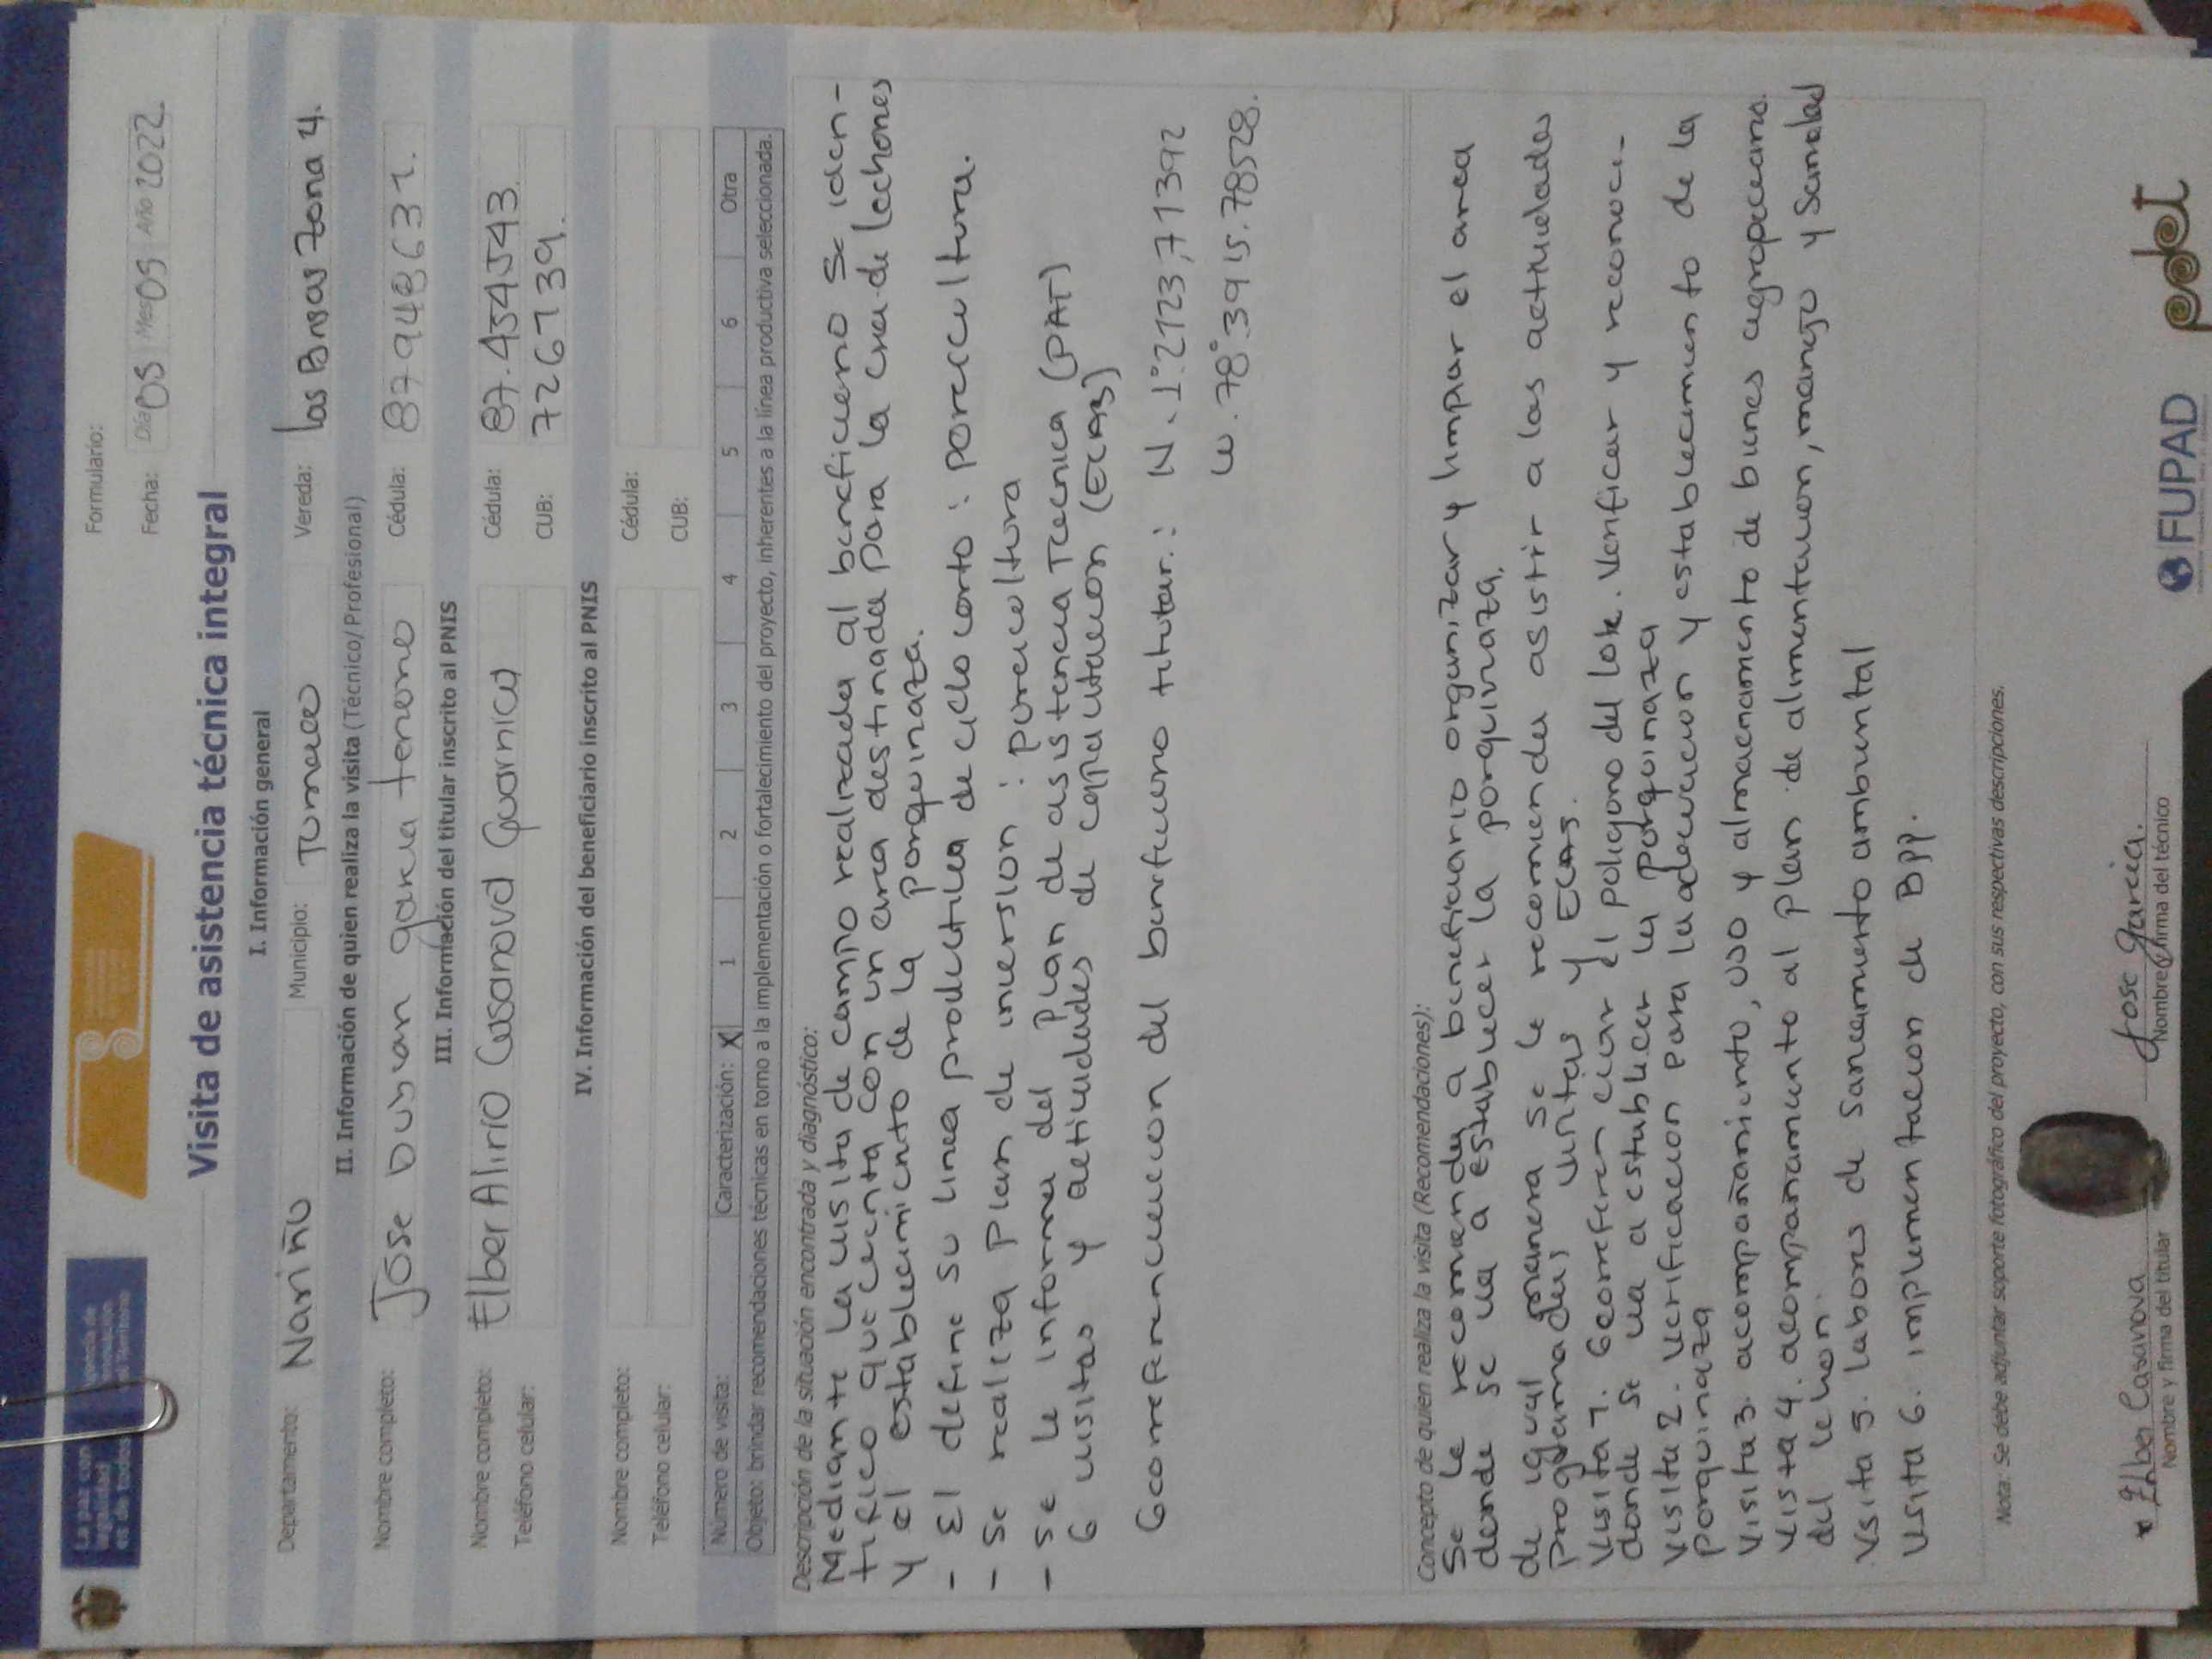 La paz con
es de todos
Formulario:
Fecha: Día 05 Mes 05 Año 2022
Visita de asistencia técnica integral
I. Información general
Departamento: Nariño Municipio: Tumaco Vereda: las Brisas zona 4.
II. Información de quien realiza la visita (Técnico/Profesional)
Nombre completo: Jose Duvan garcia tenorio Cédula: 87948631.
III. Información del titular inscrito al PNIS
Nombre completo: Elber Alirio Casanova Guarnica Cédula: 87.454543
Teléfono celular: CUB: 726739.
IV. Información del beneficiario inscrito al PNIS
Nombre completo: Cédula:
Teléfono celular: CUB:
Número de visita: Caracterización: X 1 2 3 4 5 6 Otra
Objeto: brindar recomendaciones técnicas en torno a la implementación o fortalecimiento del proyecto, inherentes a la línea productiva seleccionada.
Descripción de la situación encontrada y diagnóstico:
Mediante la visita de campo realizada al beneficiario se iden-
tifico que cuenta con un area destinada para la cria de lechones
y el establecimiento de la porquinaza.
- El define su linea productiva de ciclo corto : porcicultura.
- Se realiza plan de inversion : porcicultura
- Se le informa del Plan de asistencia Tecnica (PAT)
6 visitas y actividades de capacitacion (ECAS)
Georreferenciacion del beneficiario titular: N. 1°2123,71392
W. 78°.3915.78528.
Concepto de quien realiza la visita (Recomendaciones):
Se le recomienda a beneficiario organizar y limpiar el area
donde se va a establecer la porquinaza.
de igual manera se le recomienda asistir a las actividades
programadas, visitas y ECAS.
Visita 1. Georreferenciar el poligono del lote. Verificar y reconocer
donde se va a establecer la Porquinaza
Visita 2. verificacion para la adecuacion y establecimiento de la
porquinaza
Visita 3. acompañamiento, uso y almacenamiento de bienes agropecuarios.
Vista 4. acompañamiento al plan de alimentacion, manejo y sanidad
del lechon.
Visita 5. labores de saneamiento ambiental
Visita 6. implementacion de Bpp.
Nota: Se debe adjuntar soporte fotográfico del proyecto, con sus respectivas descripciones.
x Elber Casanova Jose garcia.
Nombre y firma del titular Nombre y firma del técnico
FUPAD
pdet